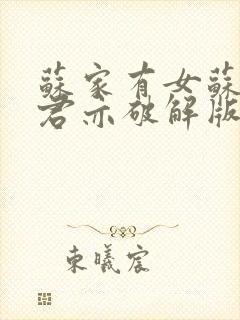 蘇家有女蘇
君亦破解版
東曦宸